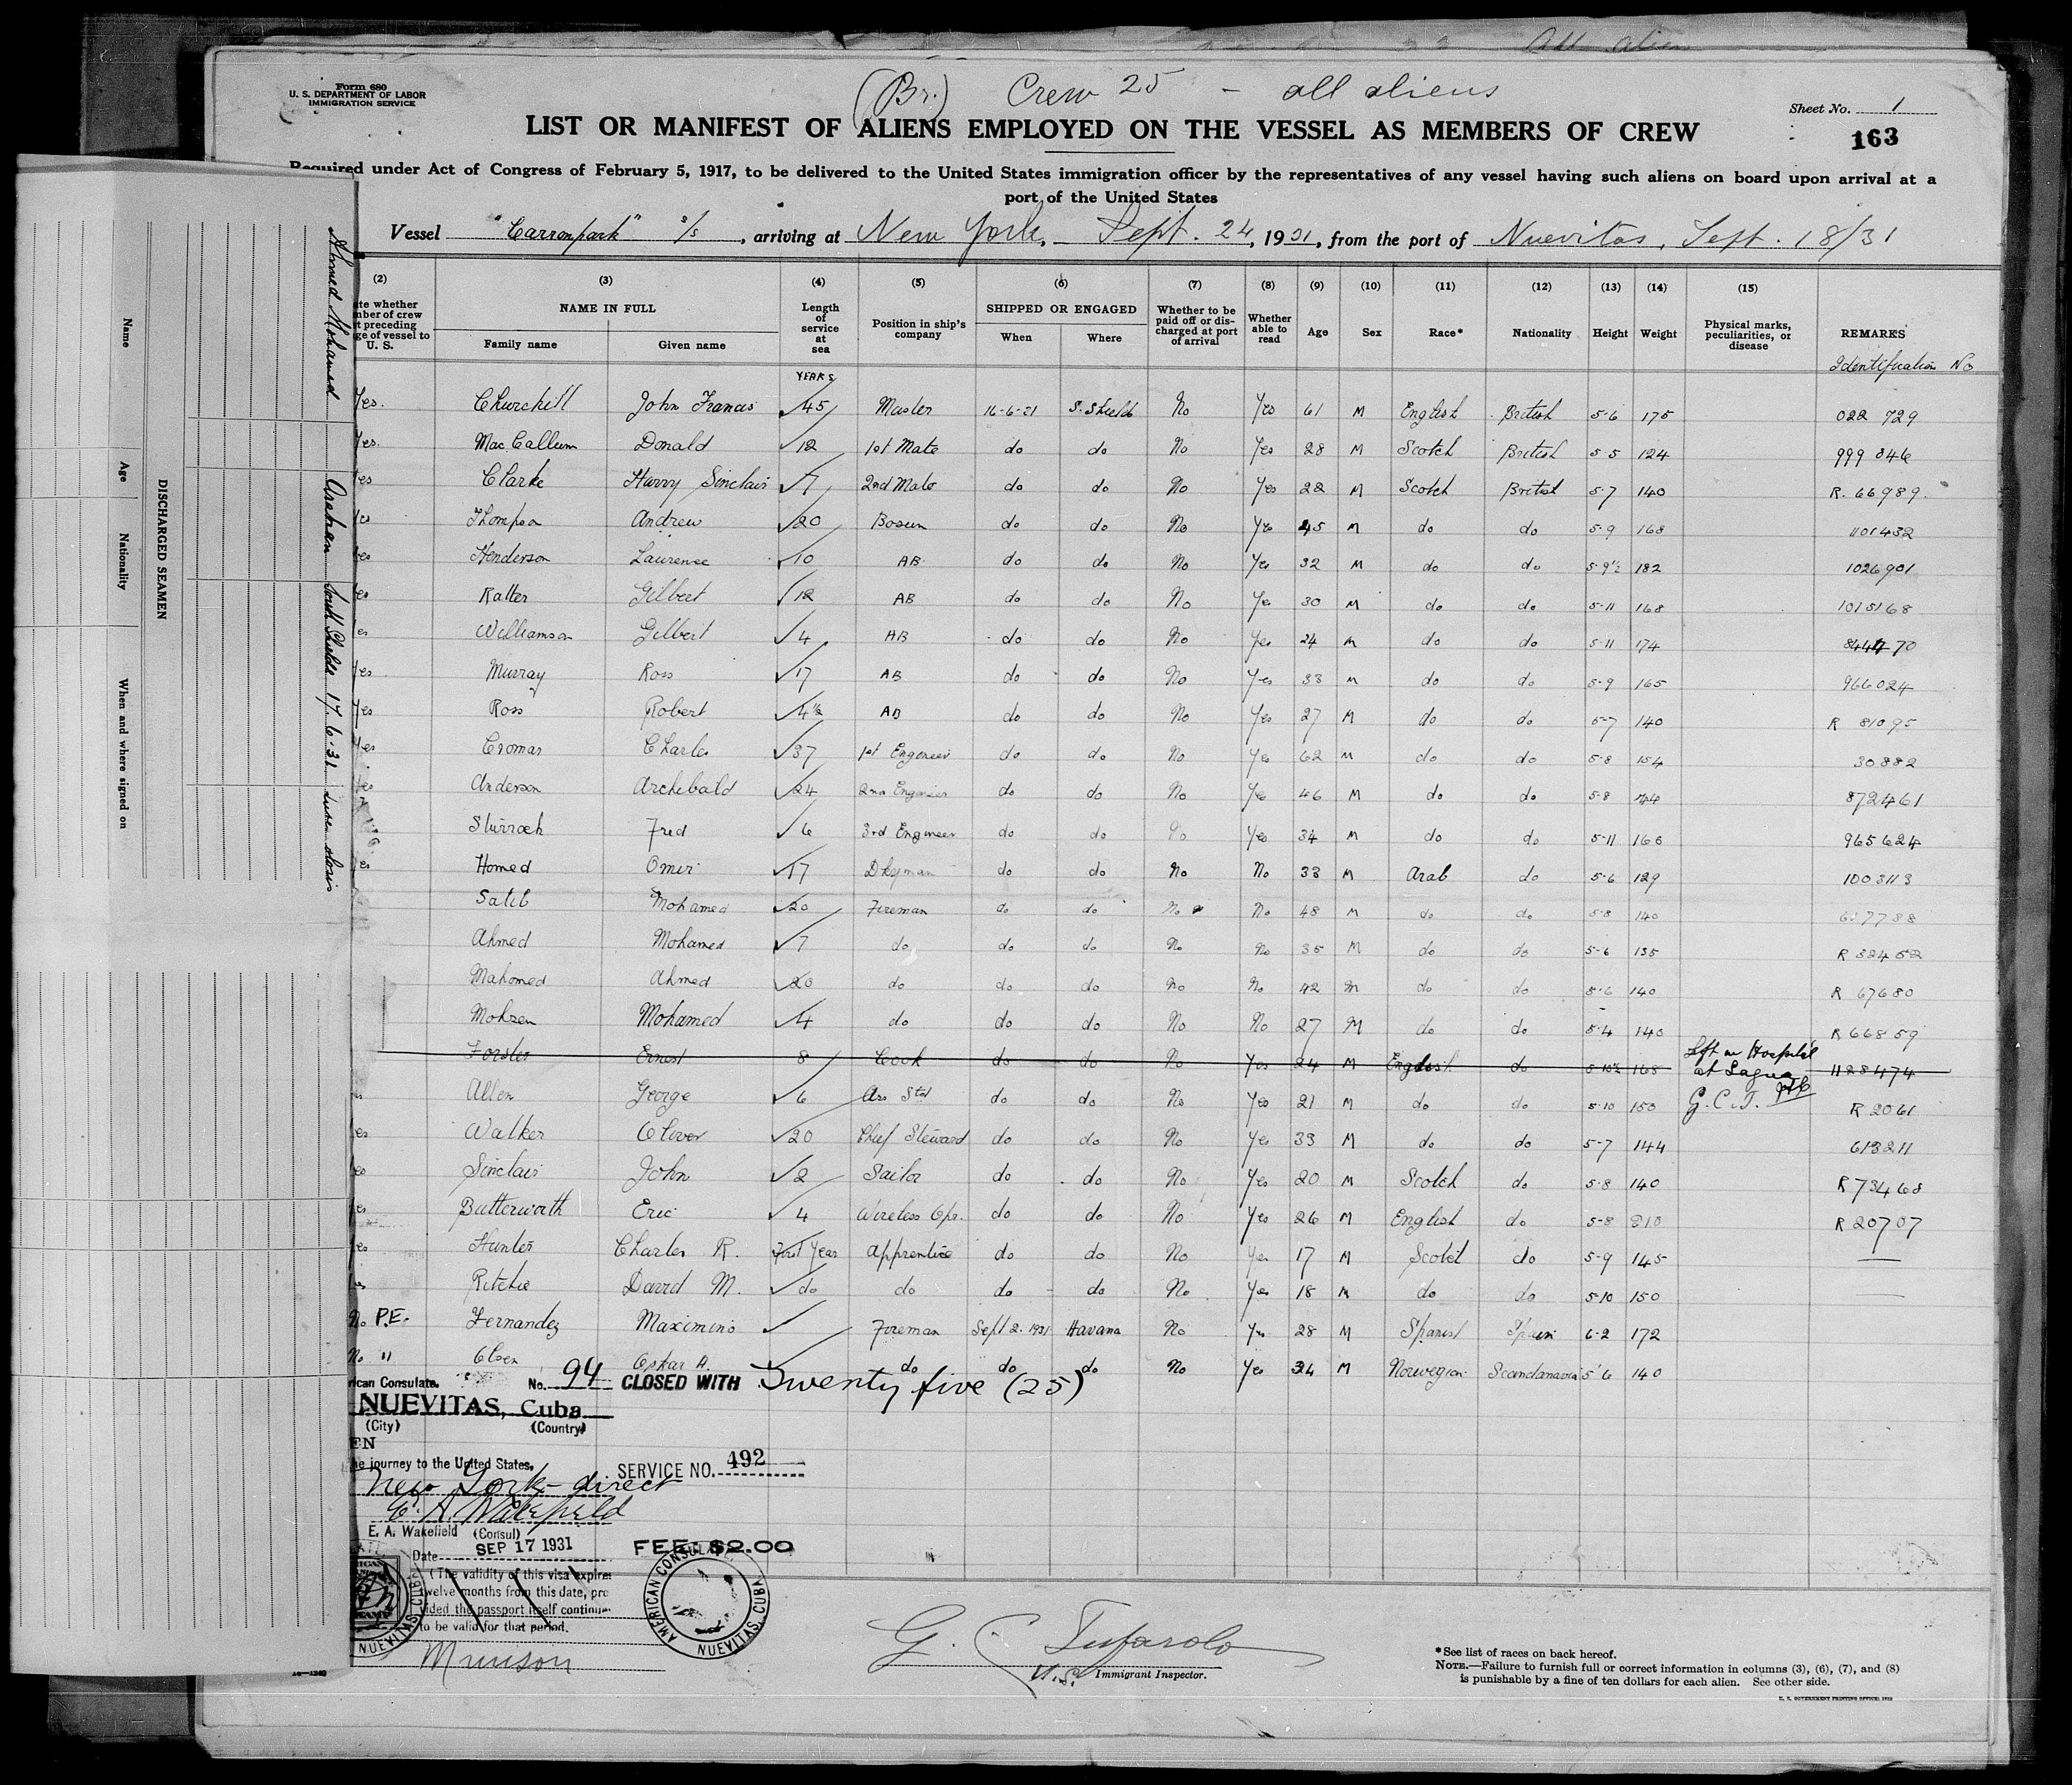 All alien
Form 680
U. S. DEPARTMENT OF LABOR
IMMIGRATION SERVICE
(Br.) Crew 25 - all aliens
Sheet No. 1
163
LIST OR MANIFEST OF ALIENS EMPLOYED ON THE VESSEL AS MEMBERS OF CREW
Required under Act of Congress of February 5, 1917, to be delivered to the United States immigration officer by the representatives of any vessel having such aliens on board upon arrival at a
port of the United States
Vessel "Carronpark" s/s, arriving at New York, Sept. 24, 1931, from the port of Nuevitas, Sept. 18/31
(2) (3) (4) (5) (6) (7) (8) (9) (10) (11) (12) (13) (14) (15)
te whether
mber of crew
t preceding
ge of vessel to
U. S.
NAME IN FULL
Family name Given name
Length of service at sea
Position in ship's company
SHIPPED OR ENGAGED
When Where
Whether to be paid off or discharged at port of arrival
Whether able to read
Age Sex Race* Nationality Height Weight
Physical marks, peculiarities, or disease
REMARKS
Identification No
YEARS
Yes. Churchill John Francis 45 Master 16-6-31 S. Shields No Yes 61 M English British 5-6 175 022 729
Yes. MacCallum Donald 12 1st Mate do do No Yes 28 M Scotch British 5-5 124 999 846
Yes Clarke Harry Sinclair 7 2nd Mate do do No Yes 22 M Scotch British 5-7 140 R. 66989.
Yes Thompson Andrew 20 Bosun do do No Yes 45 M do do 5-9 168 1101432
Yes Henderson Laurence 10 AB do do No Yes 32 M do do 5-9½ 182 1026901
Yes Ratter Gilbert 12 AB do do No Yes 30 M do do 5-11 168 1015168
Yes Williamson Gilbert 4 AB do do No Yes 24 M do do 5-11 174
Yes Murray Ross 17 AB do do No Yes 33 M do do 5-9 165 966024
Yes Ross Robert 4½ AB do do No Yes 27 M do do 5-7 140 R 81095
Yes Cromar Charles 37 1st Engineer do do No Yes 62 M do do 5-8 154 30882
Yes Anderson Archibald 24 2nd Engineer do do No Yes 46 M do do 5-8 144 872461
Sturrock Fred 6 3rd Engineer do do No Yes 34 M do do 5-11 166 965624
Yes Homed Omer 17 Dkyman do do No No 33 M Arab do 5-6 129 1003113
Salib Mohamed 20 Fireman do do No No 48 M do do 5-8 140
Ahmed Mohamed 7 do do do No No 35 M do do 5-6 135 R 32452
Mahomed Ahmed 20 do do do No No 42 M do do 5-6 140 R 67680
Mohsen Mohamed 4 do do do No No 27 M do do 5-4 140 R 66859
Forster Ernest 8 Cook do do No Yes 24 M English do 5-10½ 168 Left in Hospital at Sagua 1128474
Allen George 6 Ass Std do do No Yes 21 M do do 5-10 150 G.C.T. R 2061
Walker Oliver 20 Chief Steward do do No Yes 33 M do do 5-7 144 613211
Sinclair John 2 Sailor do do No Yes 20 M Scotch do 5-8 140 R 73468
Butterworth Eric 4 Wireless Opr. do do No Yes 26 M English do 5-8 210 R 20707
Hunter Charles R. First Year Apprentice do do No Yes 17 M Scotch do 5-9 145 —
Ritchie David M. do do do do No Yes 18 M do do 5-10 150 —
No P.E. Fernandez Maximino Fireman Sept 2. 1931 Havana No Yes 28 M Spanish Spain 6-2 172
No " Olsen Oskar A. do do do No Yes 34 M Norwegian Scandanavia 5'6 140
rican Consulate. No. 94 CLOSED WITH Twenty five (25)
NUEVITAS, Cuba
(City) (Country)
EN
he journey to the United States,
SERVICE NO. 492
New York - direct
E. A. Wakefield
E. A. Wakefield (Consul)
Date SEP 17 1931
FEE: $2.00
(The validity of this visa expires
twelve months from this date, pro
vided the passport itself continues
to be valid for that period.
NUEVITAS, CUBA
AMERICAN CONSULATE
NUEVITAS, CUBA
Munson
G. C. Tufarolo
U.S. Immigrant Inspector.
*See list of races on back hereof.
NOTE.—Failure to furnish full or correct information in columns (3), (6), (7), and (8)
is punishable by a fine of ten dollars for each alien. See other side.
U. S. GOVERNMENT PRINTING OFFICE: 1932
DISCHARGED SEAMEN
Name Age Nationality When and where signed on
Ahmed Mohamed Arabian South Shields 17.6.31